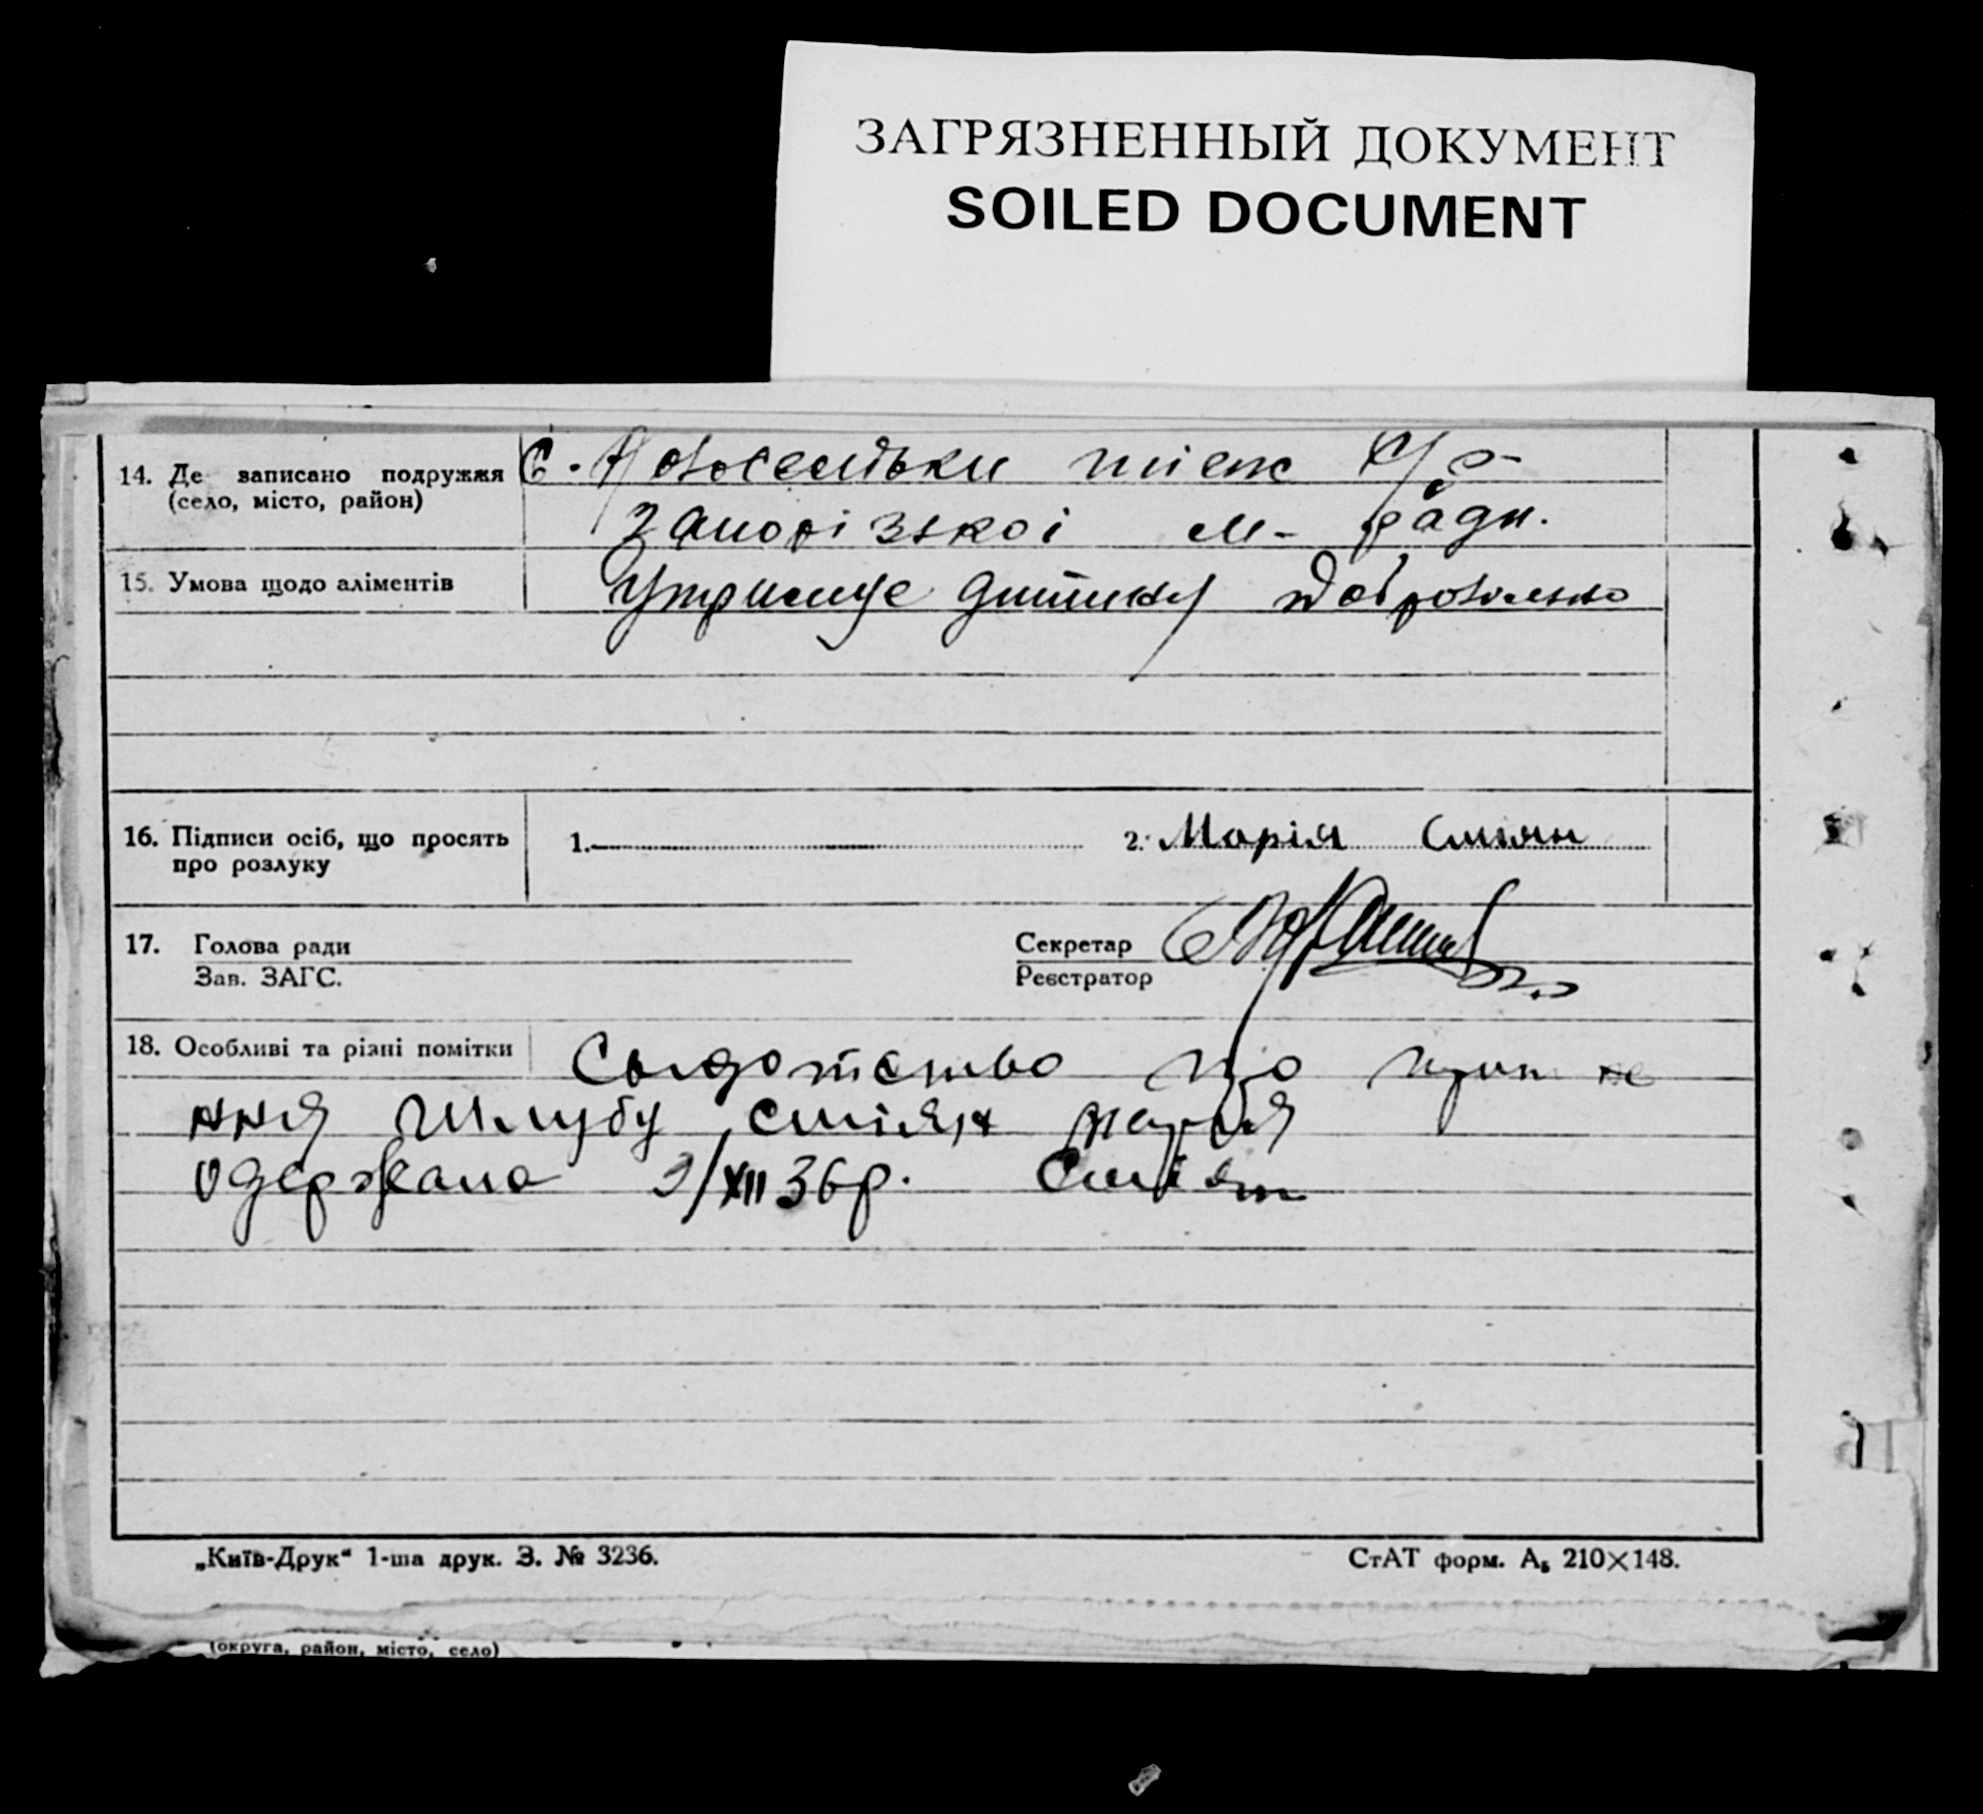 ЗАГРЯЗНЕННЫЙ ДОКУМЕНТ
SOILED DOCUMENT
14. Де записано подружжя
(село, місто, район)
С. Новоселівки
запорізької м- ради.
15. Умова щодо аліментів
Утримує дитину добровільно
16. Підписи осіб, що просять
про розлуку
1. 2. Марія Сміян
17. Голова ради Секретар
Зав. ЗАГС. Реєстратор
18. Особливі та різні помітки
Свидотство про припине
ння шлубу Сміян Марія
одержала 9/XII 36р. Сміян
„Київ-Друк“ 1-ша друк. З. № 3236. СтАТ форм. А₅ 210×148.
(округа, район, місто, село)